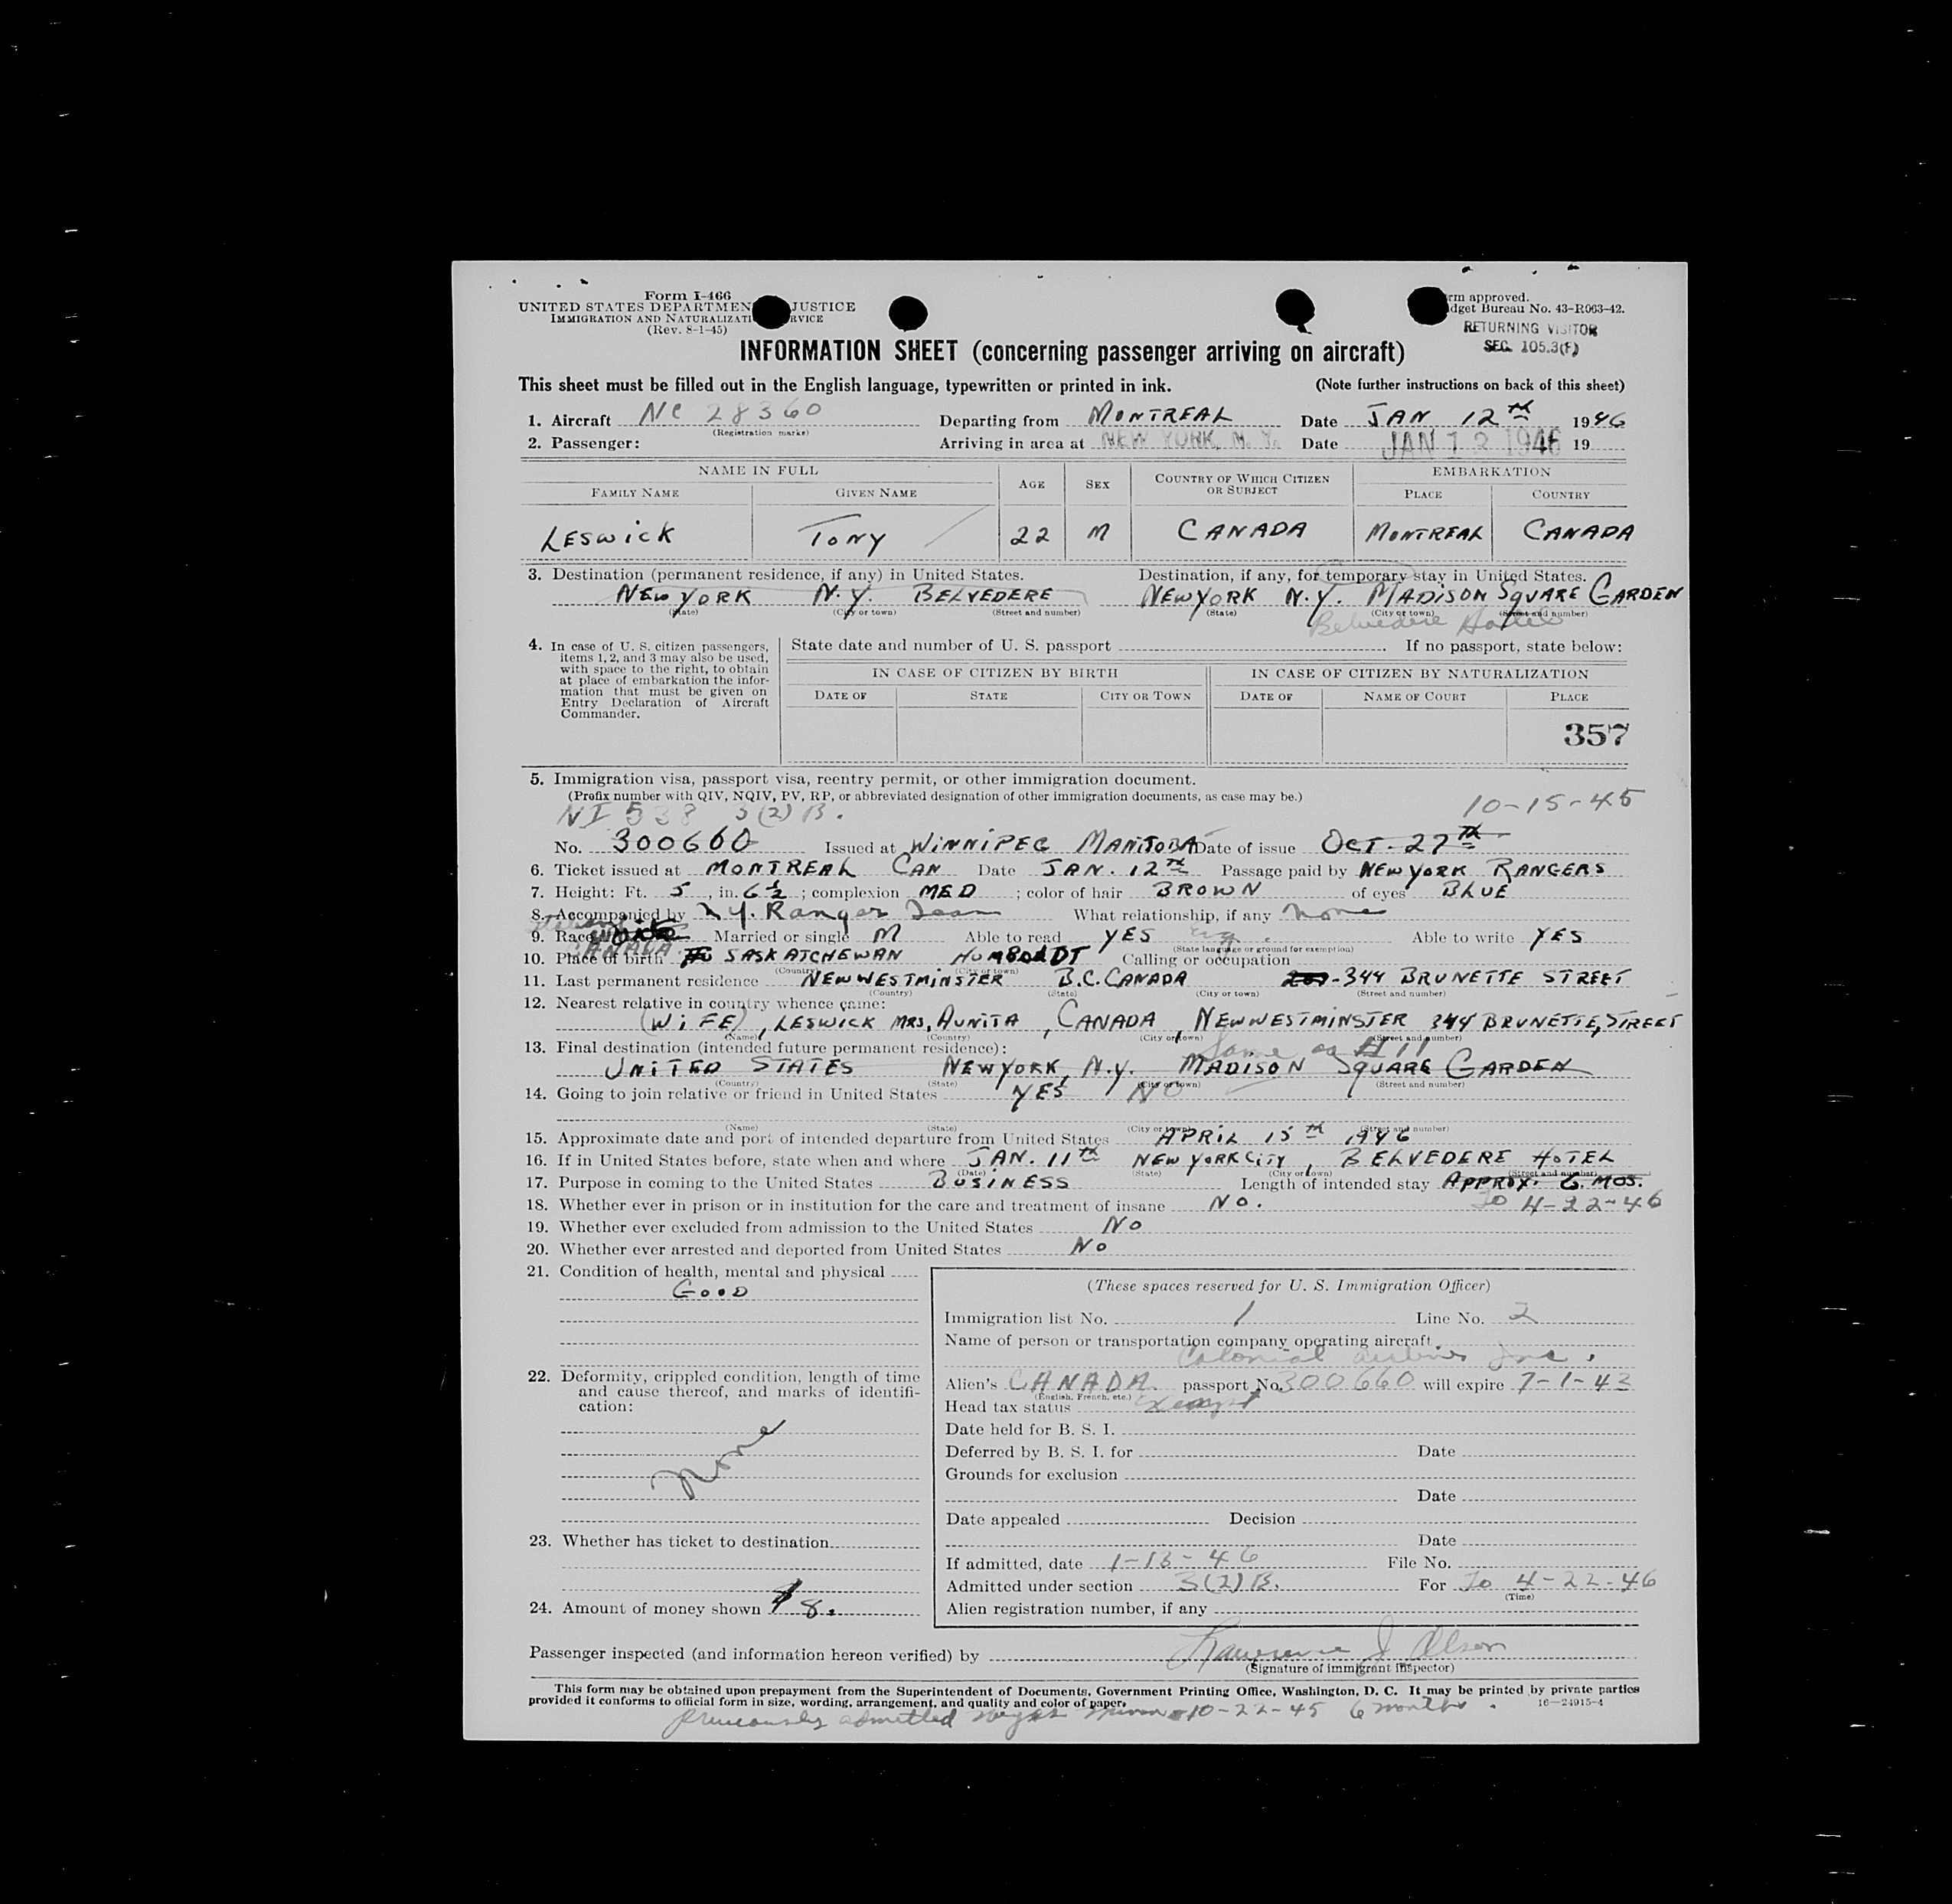 Form I-466
UNITED STATES DEPARTMEN JUSTICE
IMMIGRATION AND NATURALIZATI RVICE
(Rev. 8-1-45)
rm approved.
dget Bureau No. 43-R063-42.
RETURNING VISITOR
SEC. 105.3(F)
INFORMATION SHEET (concerning passenger arriving on aircraft)
This sheet must be filled out in the English language, typewritten or printed in ink. (Note further instructions on back of this sheet)
1. Aircraft NC 28360 Departing from MONTREAL Date JAN 12th 1946
(Registration marks)
2. Passenger: Arriving in area at NEW YORK, N. Y. Date JAN 12 1946 19
NAME IN FULL AGE SEX COUNTRY OF WHICH CITIZEN OR SUBJECT EMBARKATION
FAMILY NAME GIVEN NAME PLACE COUNTRY
LESWICK TONY 22 M CANADA MONTREAL CANADA
3. Destination (permanent residence, if any) in United States. Destination, if any, for temporary stay in United States.
NEW YORK N.Y. BELVEDERE NEW YORK N.Y. MADISON SQUARE GARDEN
(State) (City or town) (Street and number) (State) (City or town) (Street and number)
Belvedere Hotel
4. In case of U. S. citizen passengers, items 1, 2, and 3 may also be used, with space to the right, to obtain at place of embarkation the information that must be given on Entry Declaration of Aircraft Commander.
State date and number of U. S. passport If no passport, state below:
IN CASE OF CITIZEN BY BIRTH IN CASE OF CITIZEN BY NATURALIZATION
DATE OF STATE CITY OR TOWN DATE OF NAME OF COURT PLACE
357
5. Immigration visa, passport visa, reentry permit, or other immigration document.
(Prefix number with QIV, NQIV, PV, RP, or abbreviated designation of other immigration documents, as case may be.)
NI 538 3(2)B. 10-15-45
No. 300660 Issued at WINNIPEG MANITOBA Date of issue OCT. 27th
6. Ticket issued at MONTREAL CAN Date JAN. 12th Passage paid by NEW YORK RANGERS
7. Height: Ft. 5, in. 6½; complexion MED; color of hair BROWN of eyes BLUE
8. Accompanied by N.Y. Ranger Team What relationship, if any None
9. Race Married or single M Able to read YES Eng. Able to write YES
(State language or ground for exemption)
10. Place of birth CANADA SASKATCHEWAN HUMBOLDT Calling or occupation
(Country) (City or town)
11. Last permanent residence NEW WESTMINSTER B.C. CANADA 344 BRUNETTE STREET
(Country) (State) (City or town) (Street and number)
12. Nearest relative in country whence came:
(WIFE), LESWICK MRS, AUNITA, CANADA, NEW WESTMINSTER 344 BRUNETTE, STREET
(Name) (Country) (City or town) (Street and number)
13. Final destination (intended future permanent residence): Same as #11
UNITED STATES NEW YORK, N.Y. MADISON SQUARE GARDEN
(Country) (State) (City or town) (Street and number)
14. Going to join relative or friend in United States YES NO
(Name) (State) (City or town) (Street and number)
15. Approximate date and port of intended departure from United States APRIL 15th 1946
16. If in United States before, state when and where JAN. 11th NEW YORK CITY, BELVEDERE HOTEL
(Date) (State) (City or town) (Street and number)
17. Purpose in coming to the United States BUSINESS Length of intended stay APPROX. 6. MOS.
18. Whether ever in prison or in institution for the care and treatment of insane NO. To 4-22-46
19. Whether ever excluded from admission to the United States NO
20. Whether ever arrested and deported from United States NO
21. Condition of health, mental and physical
GOOD
22. Deformity, crippled condition, length of time and cause thereof, and marks of identification:
None
23. Whether has ticket to destination
24. Amount of money shown $8.
(These spaces reserved for U. S. Immigration Officer)
Immigration list No. 1 Line No. 2
Name of person or transportation company operating aircraft
Colonial Airlines Inc.
Alien's CANADA. passport No. 300660 will expire 7-1-43
(English, French, etc.)
Head tax status Exempt
Date held for B. S. I.
Deferred by B. S. I. for Date
Grounds for exclusion
Date
Date appealed Decision
Date
If admitted, date 1-13-46 File No.
Admitted under section 3(2)B. For To 4-22-46
(Time)
Alien registration number, if any
Passenger inspected (and information hereon verified) by Lawrence J. Olson
(Signature of immigrant inspector)
This form may be obtained upon prepayment from the Superintendent of Documents, Government Printing Office, Washington, D. C. It may be printed by private parties
provided it conforms to official form in size, wording, arrangement, and quality and color of paper. 16—24915-4
previously admitted 10-22-45 6 months.